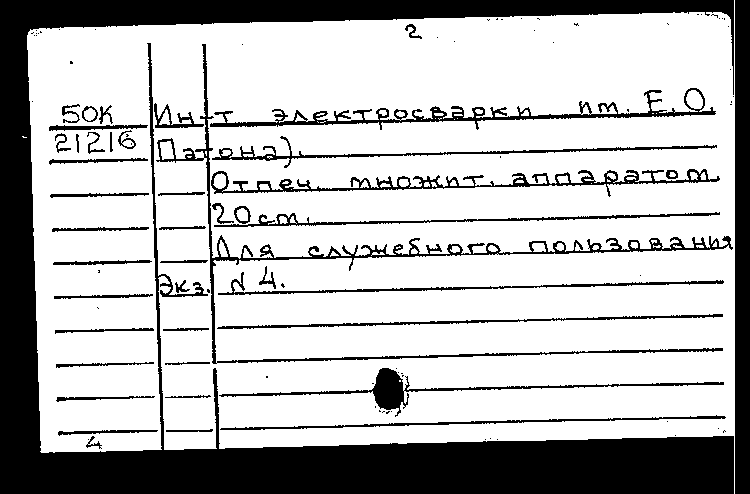 2
50К Ин-т электросварки им. Е.О.
21216 Патона).
Отпеч. множит. аппаратом
20 см.
Для служебного пользования
Экз. N 4.
4